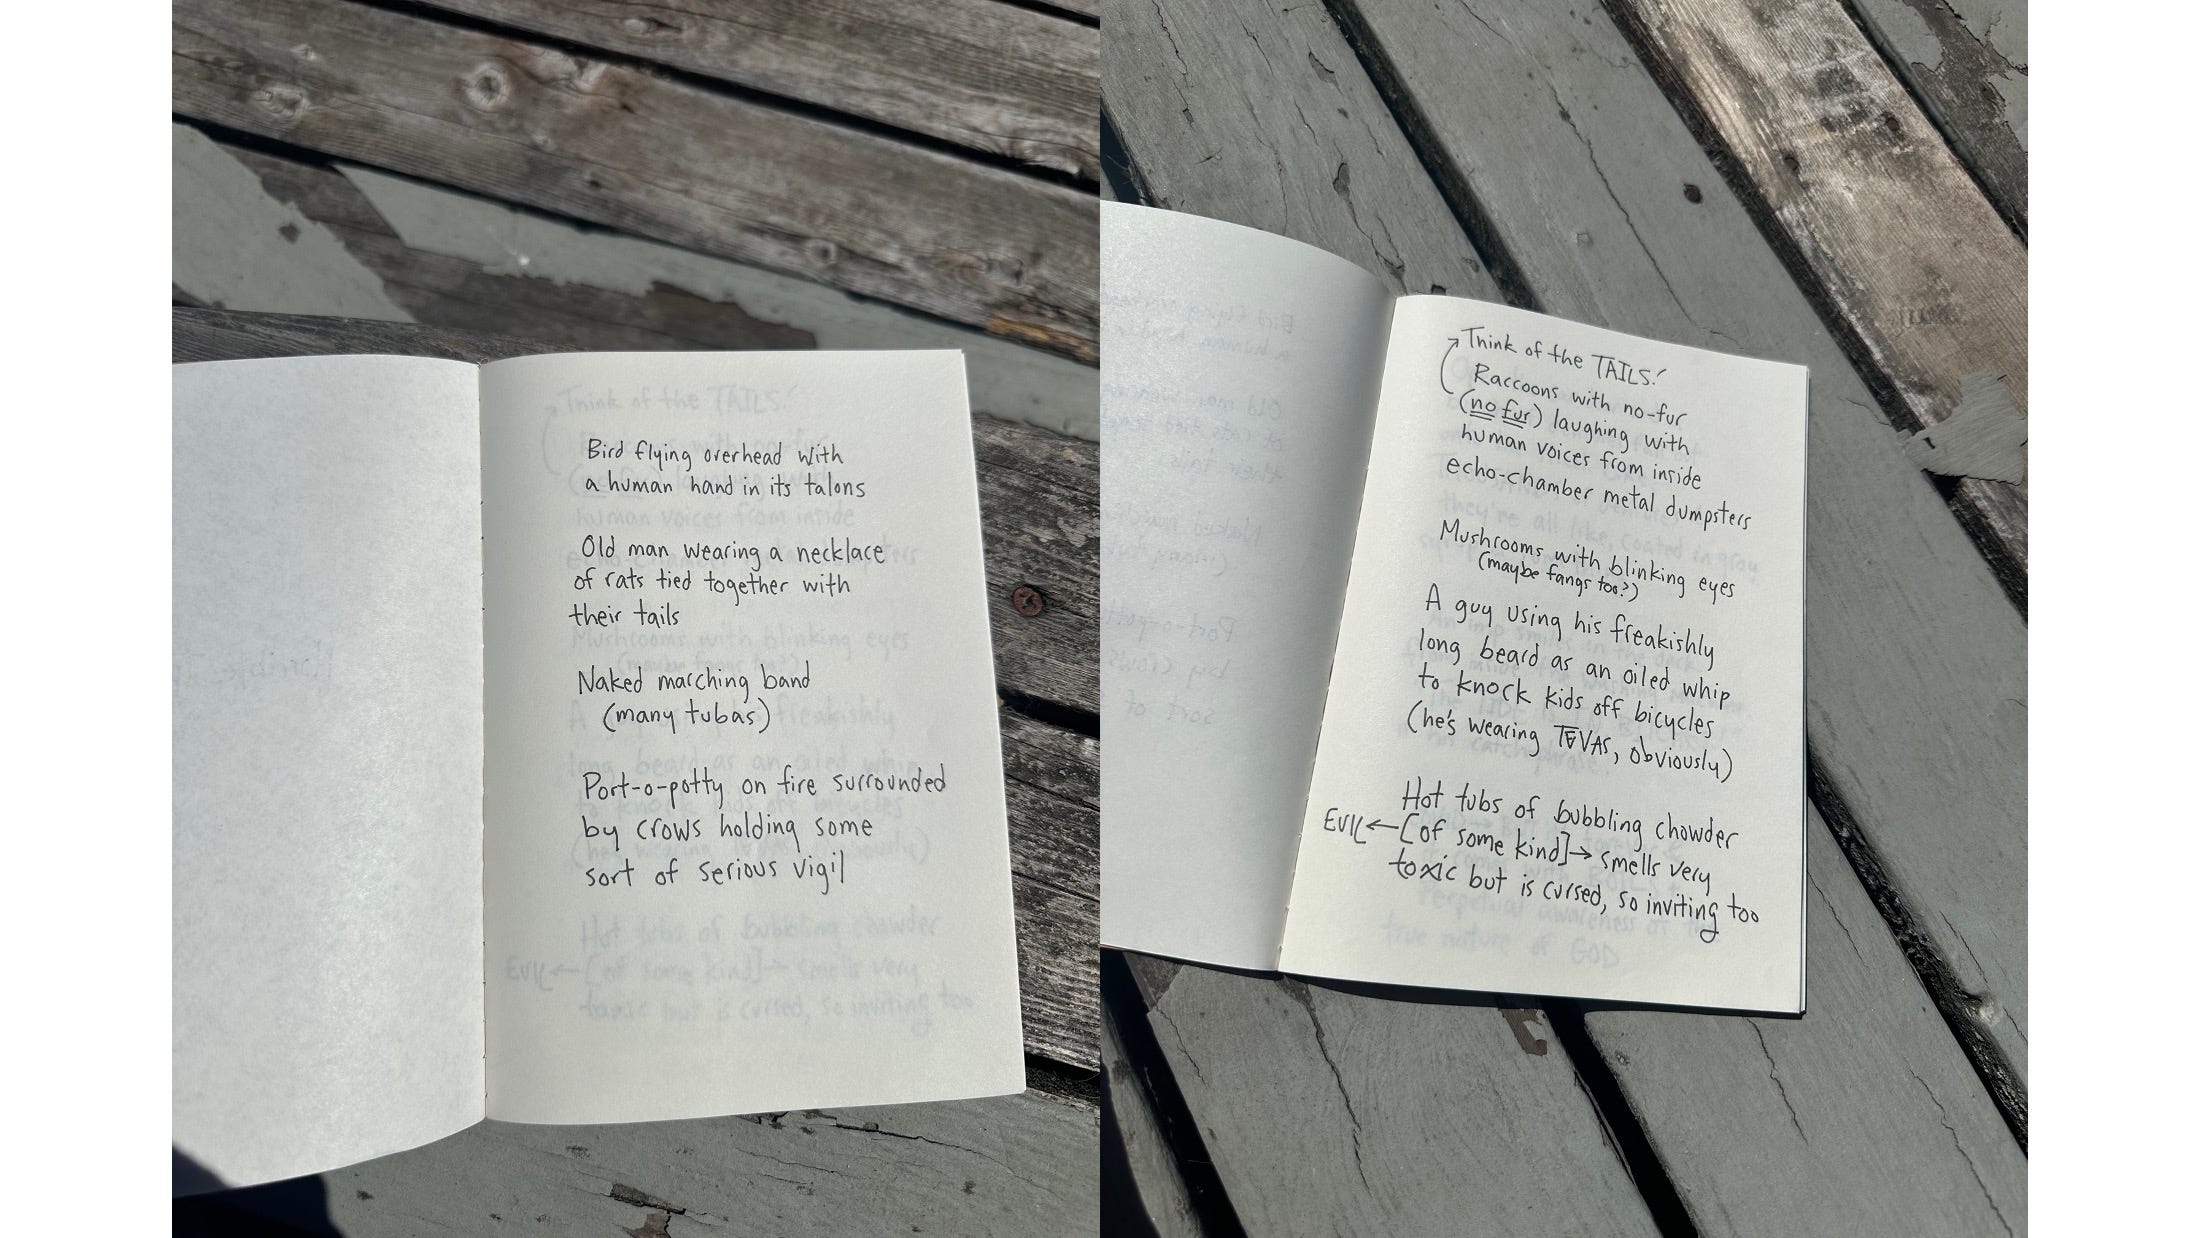 Bird flying overhead with
a human hand in its talons
Old man wearing a necklace
of rats tied together with
their tails
Naked marching band
(many tubas)
Port-o-potty on fire surrounded
by crows holding some
sort of serious vigil
Think of the TAILS!
Raccoons with no-fur
(no fur) laughing with
human voices from inside
echo-chamber metal dumpsters
Mushrooms with blinking eyes
(maybe fangs too?)
A guy using his freakishly
long beard as an oiled whip
to knock kids off bicycles
(he's wearing TEVAS, obviously)
Hot tubs of bubbling chowder
EVIL ← [of some kind] → smells very
toxic but is cursed, so inviting too